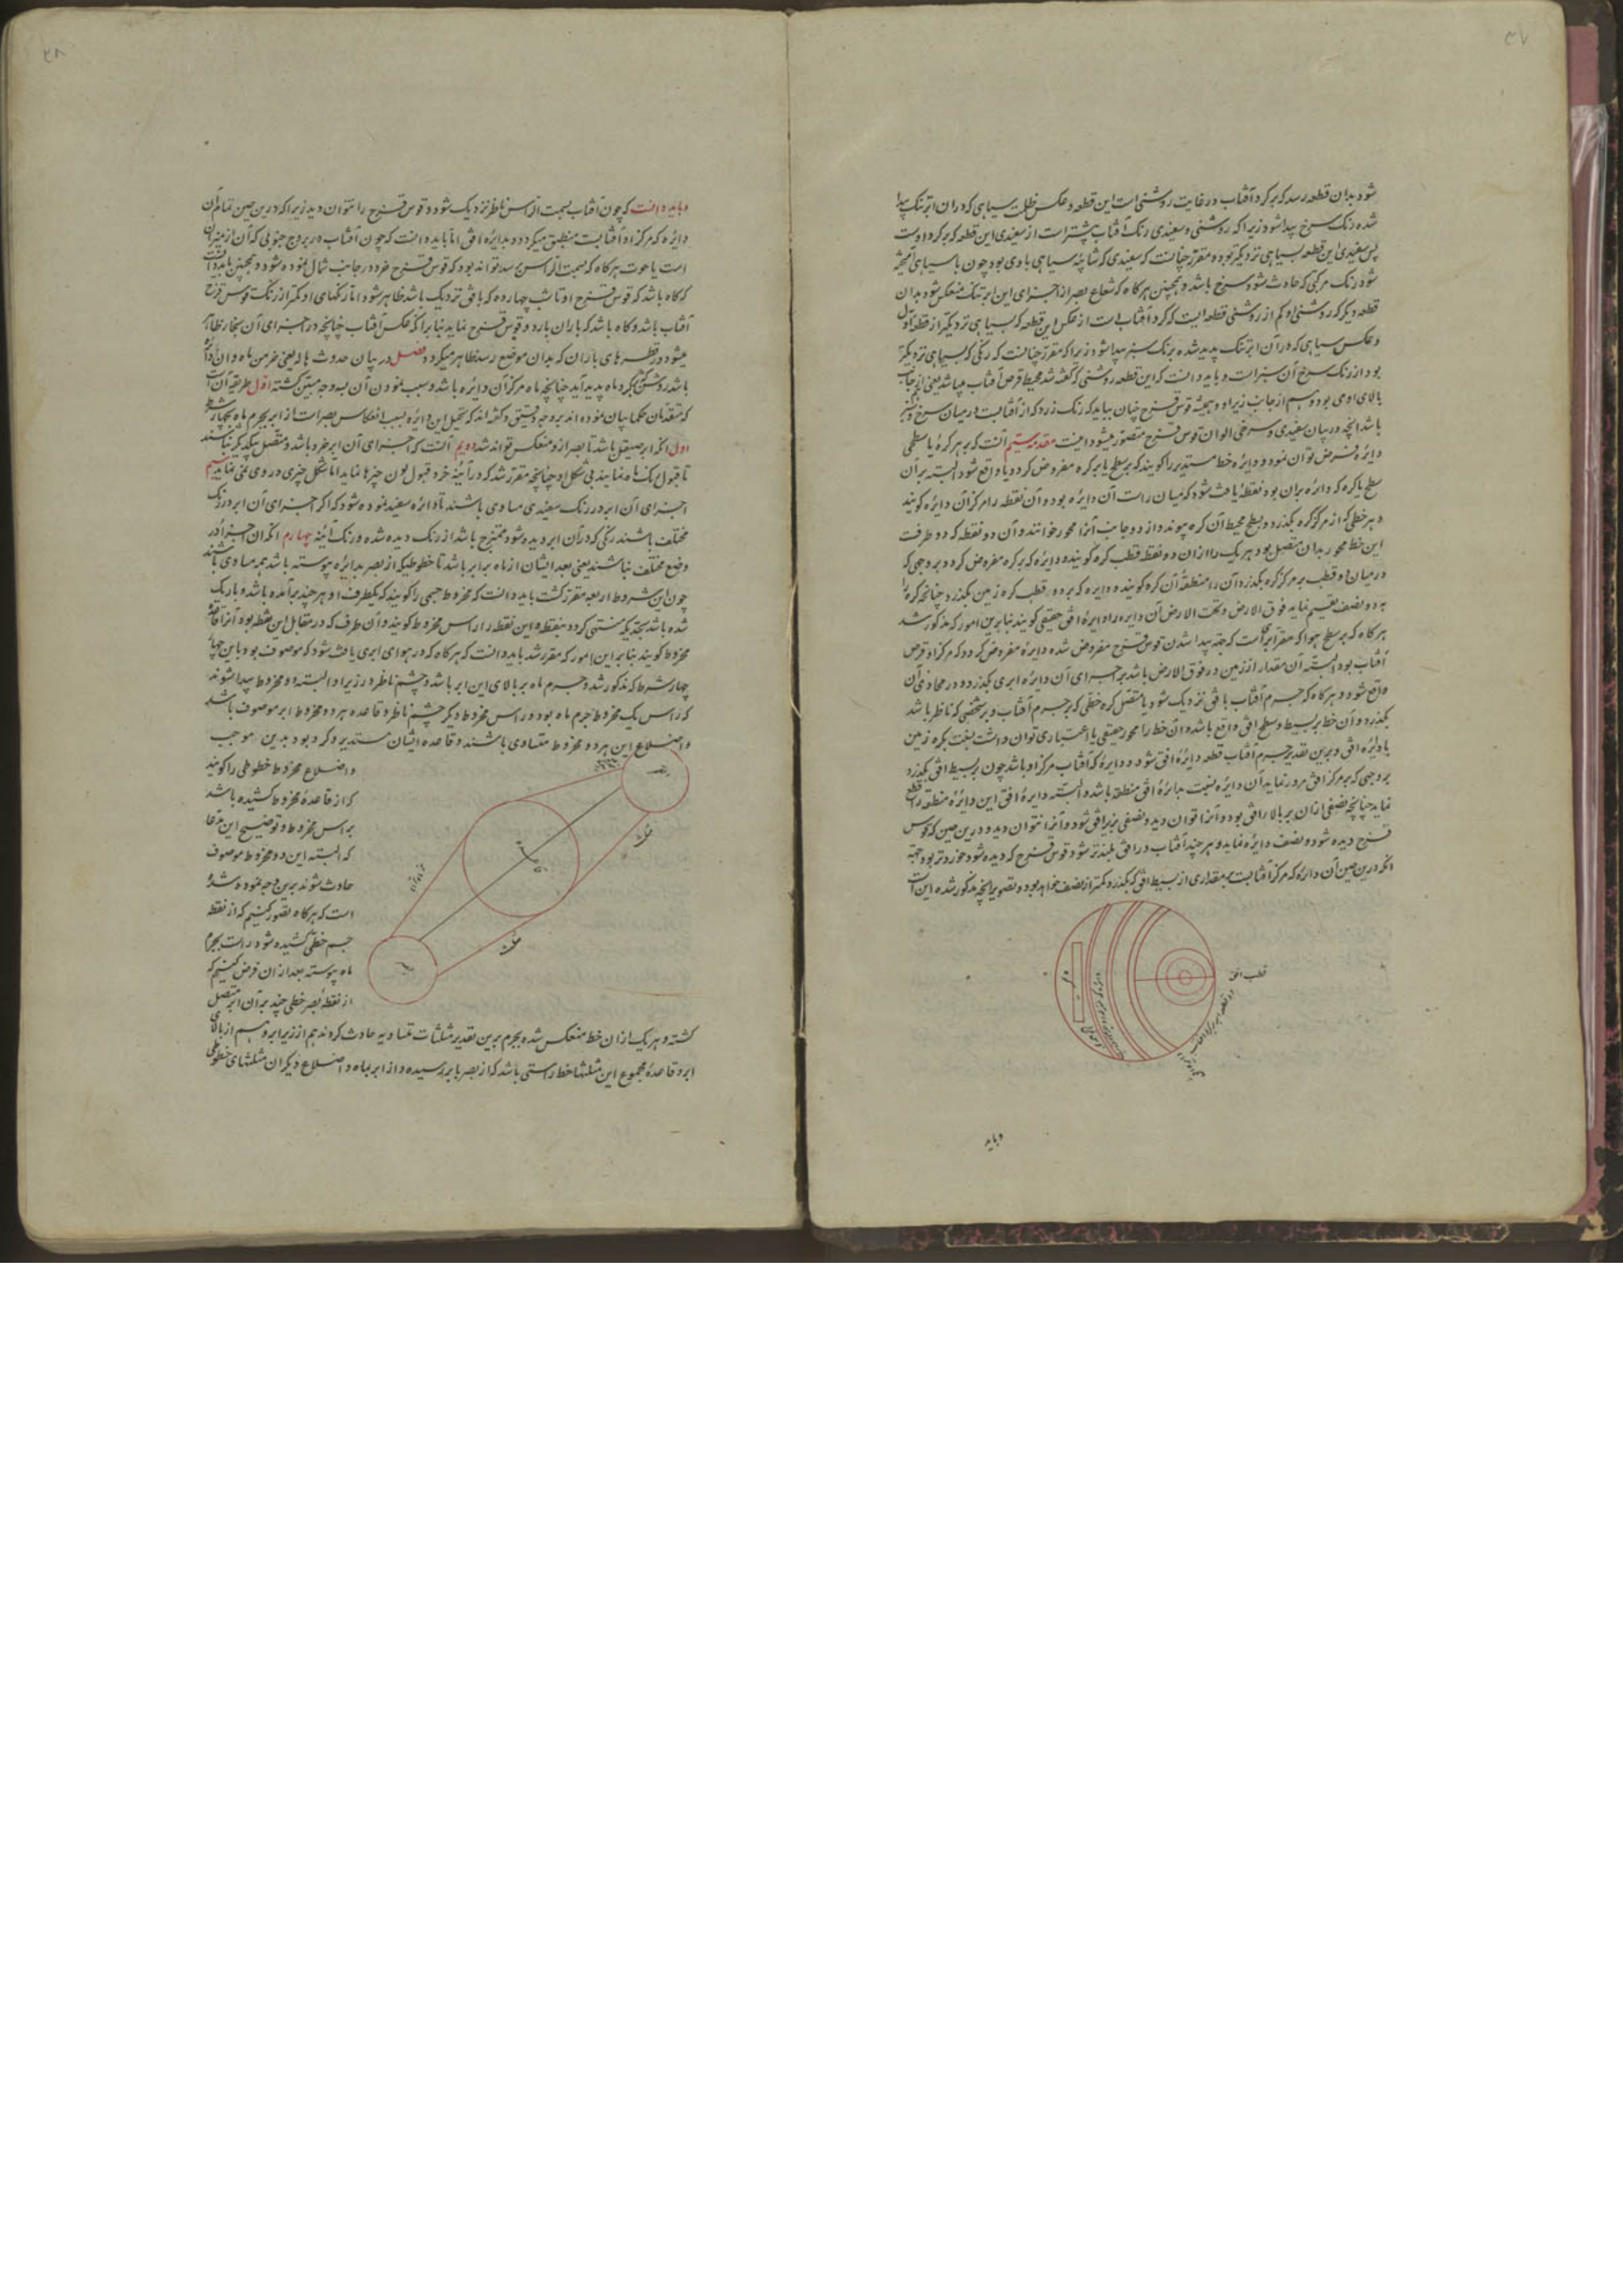 ۳۷
شود بدان قطعه رسد که بر کرد آفتاب در غایت روشنی است این قطعه و عکس ظلمت سیاهی که در ان ابر تنک پیدا
شده رنک سرخ پیدا شود زیرا که روشنی و سفیدی رنک آفتاب بیشتر است از سفیدی این قطعه که بر کرد اوست
پس سفیدی این قطعه بسیاهی نزدیکتر بوده و مقرر چنانست که سفیدی که شائبه سیاهی با وی بود چون با سیاهی آمیخته
شود رنک مرکبی که حادث شود سرخ باشد و همچنین هرکاه که شعاع بصر از اجزای این ابر تنک منعکس شود بدان
قطعه دیکر که روشنی او کم از روشنی قطعه ایست که کرد آفتاب است از عکس این قطعه که بسیاهی نزدیکتر از قطعه اول
و عکس سیاهی که در آن ابر تنک پدید شده برنک سبز پیدا شود زیرا که مقرر چنانست که رنکی که بسیاهی نزدیکتر
بود از رنک سرخ آن سبز است و باید دانست که این قطعه روشنی که کفته شد محیط قرص آفتاب میباشد یعنی از جانب
بالای او می بود و هم از جانب زیر او و همیشه قوس قزح چنان بیاید که رنک زرد که از آفتابست در میان سرخ و سبز
باشد انچه در بیان سفیدی و سرخی الوان قوس قزح متصور میشود اینست مقدمه سیم آنست که بر هر کره یا سطحی
دایره فرض توان نمود و دایره خط مستدیر را کویند که بر سطح یا بر کره مفروض کردد یا واقع شود البته بر آن
سطح یا کره که دائره بران بود نقطه یافت شود که میان راست آن دایره بود و آن نقطه را مرکز آن دایره کویند
و هر خطی که از مرکز کره بکذرد و بسطح محیط آن کره پیوندد از دو جانب آنرا محور خوانند و آن دو نقطه که دو طرفت
این خط محور بدان متصل بود هر یک را از ان دو نقطه قطب کره کویند و دایره که بر کره مفروض کردد بر وجهی که
در میان دو قطب بر مرکز کره بکذرد آن را منطقه آن کره کویند و دایره که بر دو قطب کره زمین بکذرد چنانچه کره را
بدو نصف تقسیم نماید فوق الارض و تحت الارض آن دایره را دایره افق حقیقی کویند بنابرین امور که مذکور شد
هرکاه که بر سطح هوا که مقر ابرهاست که جهة پیدا شدن قوس قزح مفروض شده دایره مفروض کردد که مرکز او قرص
آفتاب بود البته آن مقدار از زمین در فوق الارض باشد بر اجزای آن دایره ابری بکذرد و در محاذی آن
واقع شود و هرکاه که جرم آفتاب بافق نزدیک شود یا متصل کره خطی که بر جرم آفتاب و بر شخصی که ناظر باشد
بکذرد و آن خط بر بسیط و سطح افق واقع باشد و آن خط را محور حقیقی یا اعتباری توان داشت نسبت بکره زمین
یا دایره افق و برین تقدیر جرم آفتاب قطب دایره افق شود و دایره که آفتاب مرکز او باشد چون بر بسیط افق بکذرد
بر وجهی که بر مرکز افق مرور نماید آن دایره نسبت بدائره افق منطقه باشد و البته دایره افق این دایره منطقه را قطع
نماید چنانچه نصفی از ان بر بالا ر افق بود و آنرا توان دید و نصفی بزیر افق شود و آنرا نتوان دید و درین حین که قوس
قزح دیده شود و نصف دایره نماید و هر چند آفتاب در افق بلندتر شود قوس قزح که دیده شود خوردتر بود جهة
انکه درین حین آن دایره که مرکز آفتابست بمقداری از بسیط افق که بکذرد کمتر از نصف خواهد بود و تصویر انچه مذکور شده این است
قطب افق
وباید
۳۸
وباید دانست که چون آفتاب بسمت الراس ناظر نزدیک شود و قوس قزح را نتوان دید زیرا که درین حین تمام آن
دایره که مرکز او آفتابست منطبق میکردد بدایره افق اما باید دانست که چون آفتاب در بروج جنوبی که آن از میزان
است یا حوت هرکاه که بسمت الراس رسد تواند بود که قوس قزح خرد در جانب شمال نموده شود و همچنین باید دانست
که کاه باشد که قوس قزح او تا شب چهارده که بافق نزدیک باشد ظاهر شود اما رنکهای او کمتر از رنک قوس قزح
آفتاب باشد و کاه باشد که باران بارد و قوس قزح نماید بنابر انکه عکس آفتاب چنانچه در اجزای آن بخار ظاهر
میشود در قطره های باران که بدان موضع رسد ظاهر میکردد فصل در بیان حدوث هاله یعنی خرمن ماه و ان دائره
باشد روشن که کرد ماه پدید آید چنانچه ماه مرکز آن دایره باشد و سبب نمودن آن بسه وجه مبین کشته اول طریقه آن است
که متقدمان حکما بیان نموده اند بر وجه دقیق و کفته اند که تخیل این دایره بسبب انعکاس بصر است از ابر بجرم ماه بچهار شرط
اول انکه ابر صیقل باشد تا بصر ازو منعکس تواند شد دویم آنست که اجزای آن ابر خرد باشد و متصل بیکدیکر نباشند
تا قبول رنک ماه نمایند بی شکل او چنانچه مقرر شد که در آیینه خرد قبول لون چیزها نماید اما شکل چیزی در وی نمی نماید سیم
اجزای آن ابر در رنک سفیدی مساوی باشند تا دائره سفید نموده شود که اکر اجزای آن ابر در رنک
مختلف باشند رنکی که در آن ابر دیده شود ممتزج باشد از رنک دیده شده و رنک آئینه چهارم انکه ان اجزا در
وضع مختلف نباشند یعنی بعد ایشان از ماه برابر باشد تا خطوطیکه از بصر بدائره پیوسته باشد هم مساوی باشند
چون این شروط اربعه مقرر کشت باید دانست که مخروط جسمی را کویند که یکطرف او هر چند بر آمده باشد و باریک
شده باشد بحدیکه منتهی کردد بنقطه و این نقطه را راس مخروط کویند و آن طرف که در مقابل این نقطه بود آنرا قاعده
مخروط کویند بنابر این امور که مقرر شد باید دانست که هرکاه که در هوای ابری یافت شود که موصوف بود باین چهار
چهار شرط که مذکور شد و جرم ماه بر بالای این ابر باشد و چشم ناظر در زیر او البته دو مخروط پیدا شوند
که راس یک مخروط جرم ماه بود و راس مخروط دیکر چشم ناظر و قاعده هر دو مخروط ابر موصوف باشد
و اضلاع این هر دو مخروط متساوی باشند و قاعده ایشان مستدیر و کرد بود بدین موجب
و اضلاع مخروط خطوطی را کویند
که از قاعده مخروط کشیده باشد
براس مخروط و توضیح این مدعا
که البته این دو مخروط موصوف
حادث شوند برین وجه نموده شده
است که هرکاه تصور کنیم که از نقطه
جسم خطی کشیده شود راست بجرم
ماه پیوسته بعد از ان فرض کنیم که
از نقطه بصر خطی چند بر آن ابر متصل
کشته و هر یک از ان خط منعکس شده بجرم برین تقدیر مثلثات متساویه حادث کردند هم از زیر ابر و هم از بالای
ابر و قاعده مجموع این مثلثها خط راستی باشد که از بصر بابر رسیده و از ابر بماه و اضلاع دیکر ان مثلثهای خطوطی